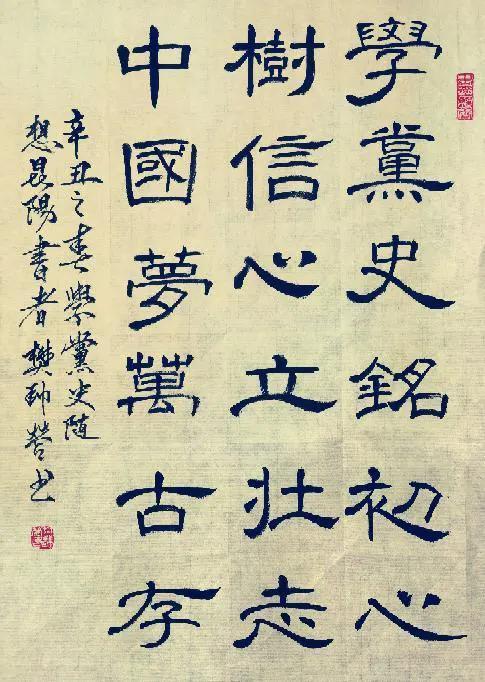 學黨史銘初心
樹信心立壯志
中國夢萬古存
辛丑之春學黨史随
想昆陽書者樊帥營书